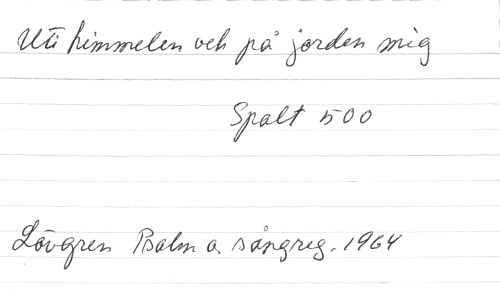 Uti himmelen och på jorden mig
Spalt 500
Lövgren Psalm o. sångreg. 1964